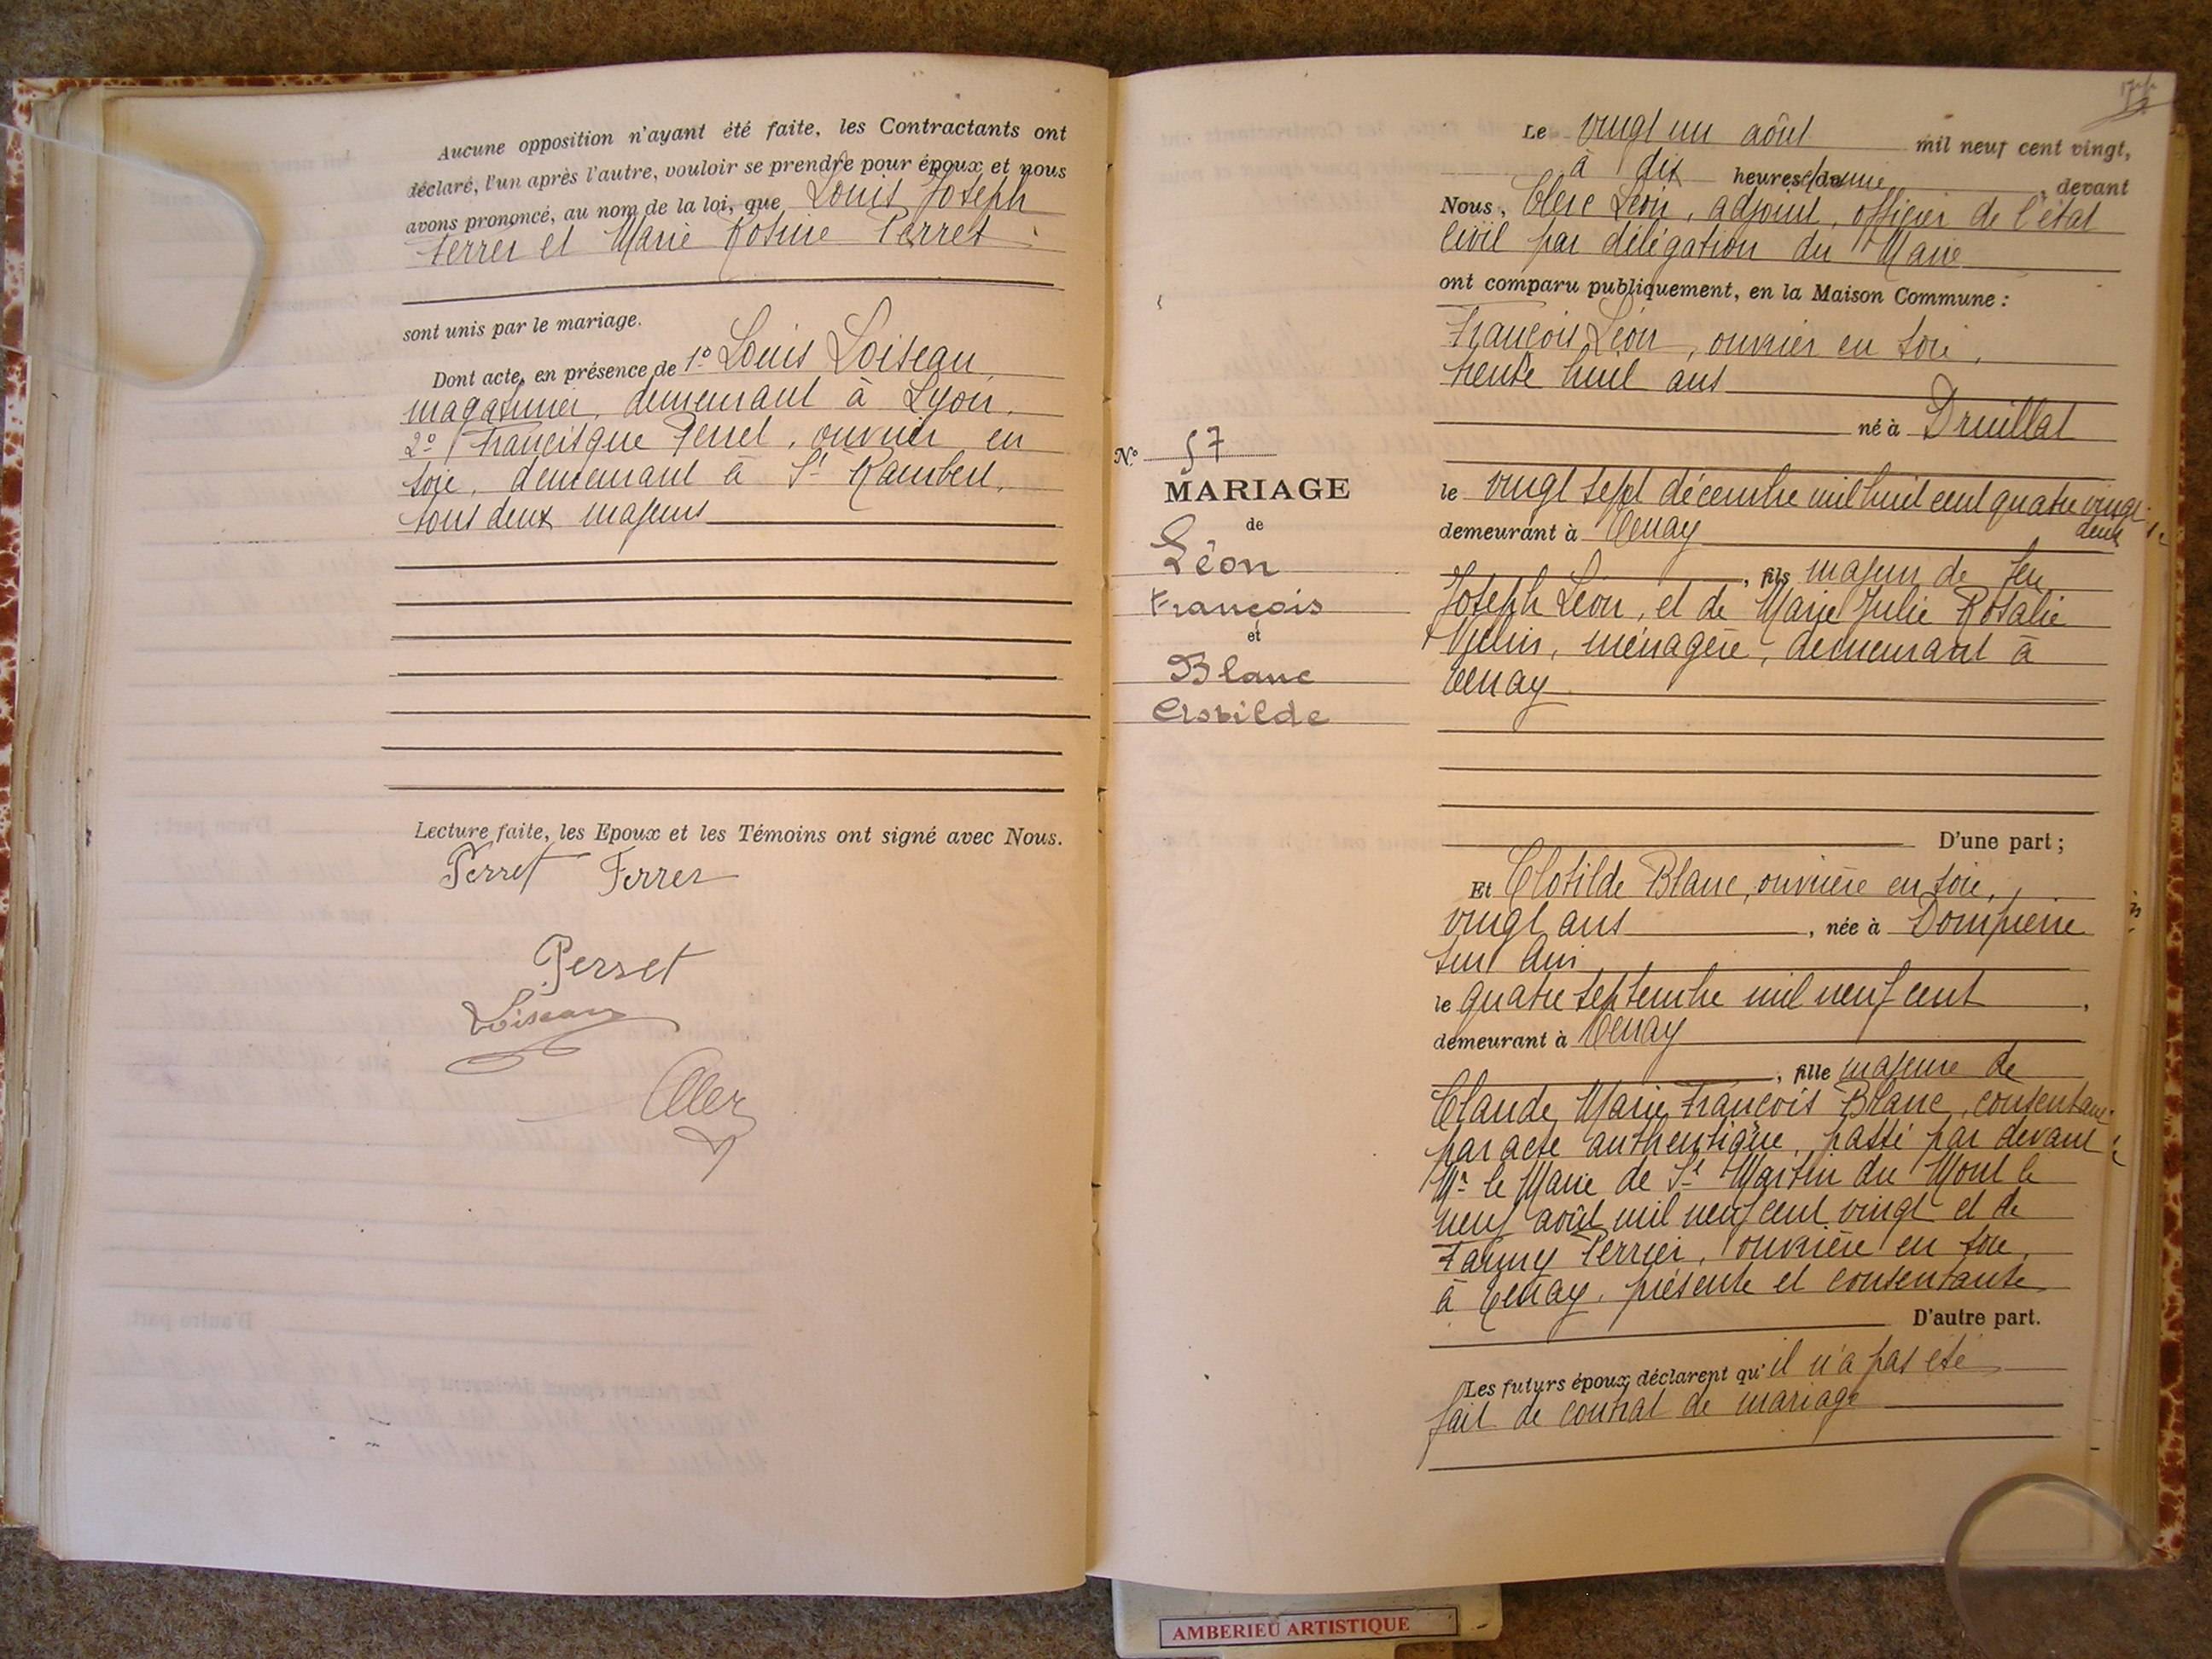 Aucune opposition n'ayant été faite, les Contractants ont
déclaré, l'un après l'autre, vouloir se prendre pour époux et nous
avons prononcé, au nom de la loi, que Louis Joseph
Ferrer et Marie Rosine Perret
sont unis par le mariage.
Dont acte, en présence de 1º Louis Loiseau
magasinier, demeurant à Lyon,
2º Francisque Perret, ouvrier en
soie, demeurant à St Rambert,
tous deux majeurs
Lecture faite, les Epoux et les Témoins ont signé avec Nous.
Perret Ferrer
Perret
Loiseau
Nº 57
MARIAGE
de
Léon
François
et
Blanc
Clotilde
Le vingt un août mil neuf cent vingt,
à dix heures du devant
Nous, Clerc Léon, adjoint, officier de l'état
civil par délégation du Maire
ont comparu publiquement, en la Maison Commune :
François Léon, ouvrier en soie,
trente huit ans
né à Druillat
le vingt sept décembre mil huit cent quatre vingt
deux
demeurant à Tenay
, fils majeur de feu
Joseph Léon, et de Marie Julie Rosalie
ménagère, demeurant à
Tenay
D'une part ;
Et Clotilde Blanc, ouvrière en soie,
vingt ans , née à Dompierre
sur Ain
le quatre septembre mil neuf cent ,
demeurant à Tenay
, fille majeure de
Claude Marie François Blanc, consentant
par acte authentique, passé par devant
Mr le Maire de St Martin du Mont le
neuf août mil neuf cent vingt et de
Fanny Perrier, ouvrière en soie,
à Tenay, présente et consentante
D'autre part.
Les futurs époux déclarent qu'il n'a pas été
fait de contrat de mariage
AMBERIEU ARTISTIQUE